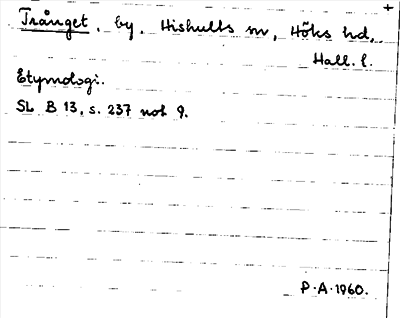 +
Trånget, by, Hishults sn, Höks hd,
Hall. l.
Etymologi.
SL B 13, s. 237 not 9.
P.A. 1960.